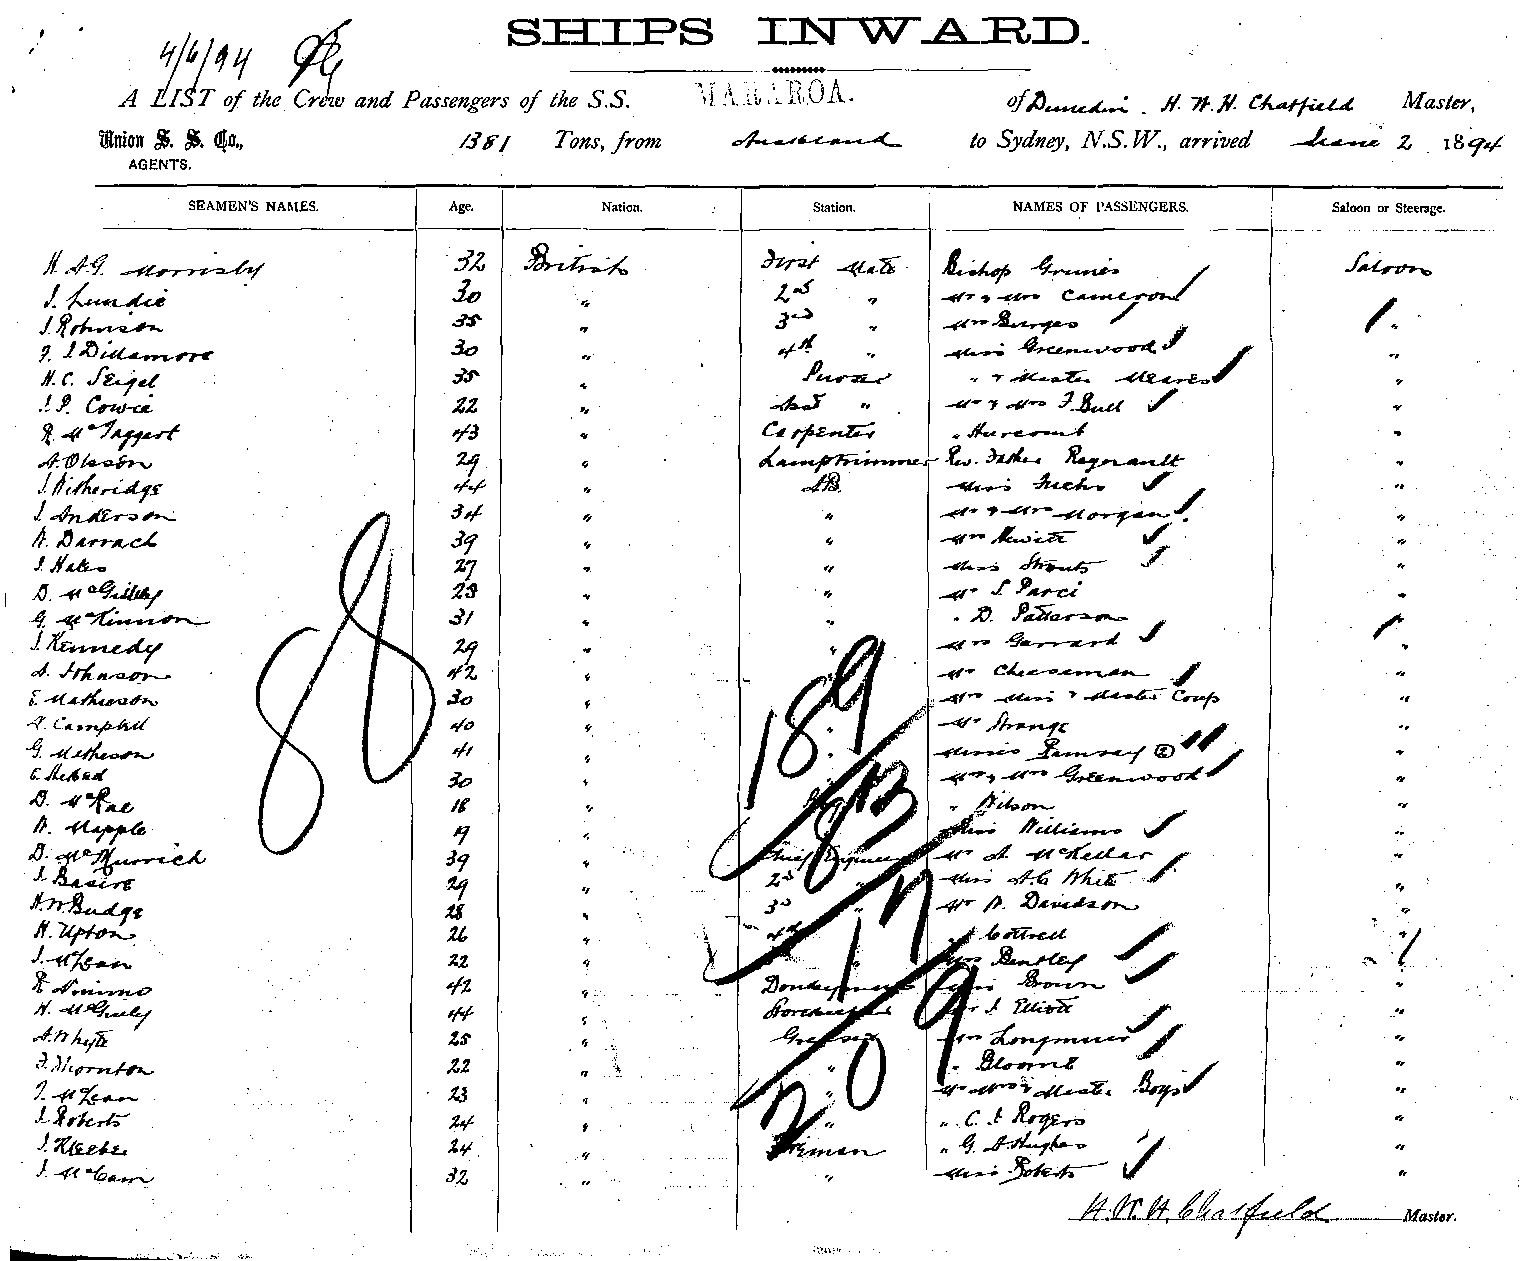 SHIPS INWARD.
4/6/94
A LIST of the Crew and Passengers of the S.S. MARAROA. of Dunedin. H. W. H. Chatfield Master,
Union S. S. Co., 1381 Tons, from Auckland to Sydney, N.S.W., arrived June 2 1894
AGENTS.
SEAMEN'S NAMES. Age. Nation. Station. NAMES OF PASSENGERS. Saloon or Steerage.
H. A. G. Morrisby 32 British First Mate Bishop Grimes Saloon
J. Lundie 30 " 2nd " Mr & Mrs Cameron "
J. Robinson 35 " 3rd " Mrs Burges "
30 " 4th " Miss Greenwood "
H. C. Seigel 35 " Purser " & Master Meares "
J. P. Cowie 22 " Asst " Mr & Mrs F Bull "
R. McTaggert 43 " Carpenter " Harcomb "
A. Olsson 29 " Lamptrimmer Rev. Father Regnault "
J. Witheridge 44 " A.B. Miss Fuchs "
J. Anderson 34 " " Mr & Mrs Morgan "
W. Darrach 39 " " Mrs Hewitt "
27 " " Miss "
D. 23 " " Mr "
G. McKinnon 31 " " " D. Patterson "
J. Kennedy 29 " " Mrs Gerrard "
A. Johnson 42 " Mr Cheeseman "
E. Mathieson 30 " Mrs Miss & Master Coup "
Campbell 40 " Mr Strange "
G. Matheson 41 " Misses Ramsay (2) "
30 " Mr & Mrs Greenwood "
D. McRae 18 " " Wilson "
W. Mapple 19 " Miss Williams "
D. McMurrich 39 " Chief Engineer Mr A McKellar "
J. Basire 29 " 2nd " Miss A. C White "
H. W. Budge 28 " 3rd " Mr W. Davidson "
H. Upton 26 " 4th " Cottrell "
J. McLean 22 " Mrs Bentley "
R Nimmo 42 " Donkeyman Brown "
H. 44 " Storekeeper J. Elliott "
A. W Whyte 25 " Greaser Mrs Longmuir "
F. Thornton 22 " " "
J. McLean 23 " " Mr Mrs & Master Boys "
J. Roberts 24 " " " C. J. Rogers "
J. 24 " Fireman " G. A Hughes "
J. McCann 32 " " Miss Roberts "
88
189
813
17
209
H. W. H. Chatfield Master.